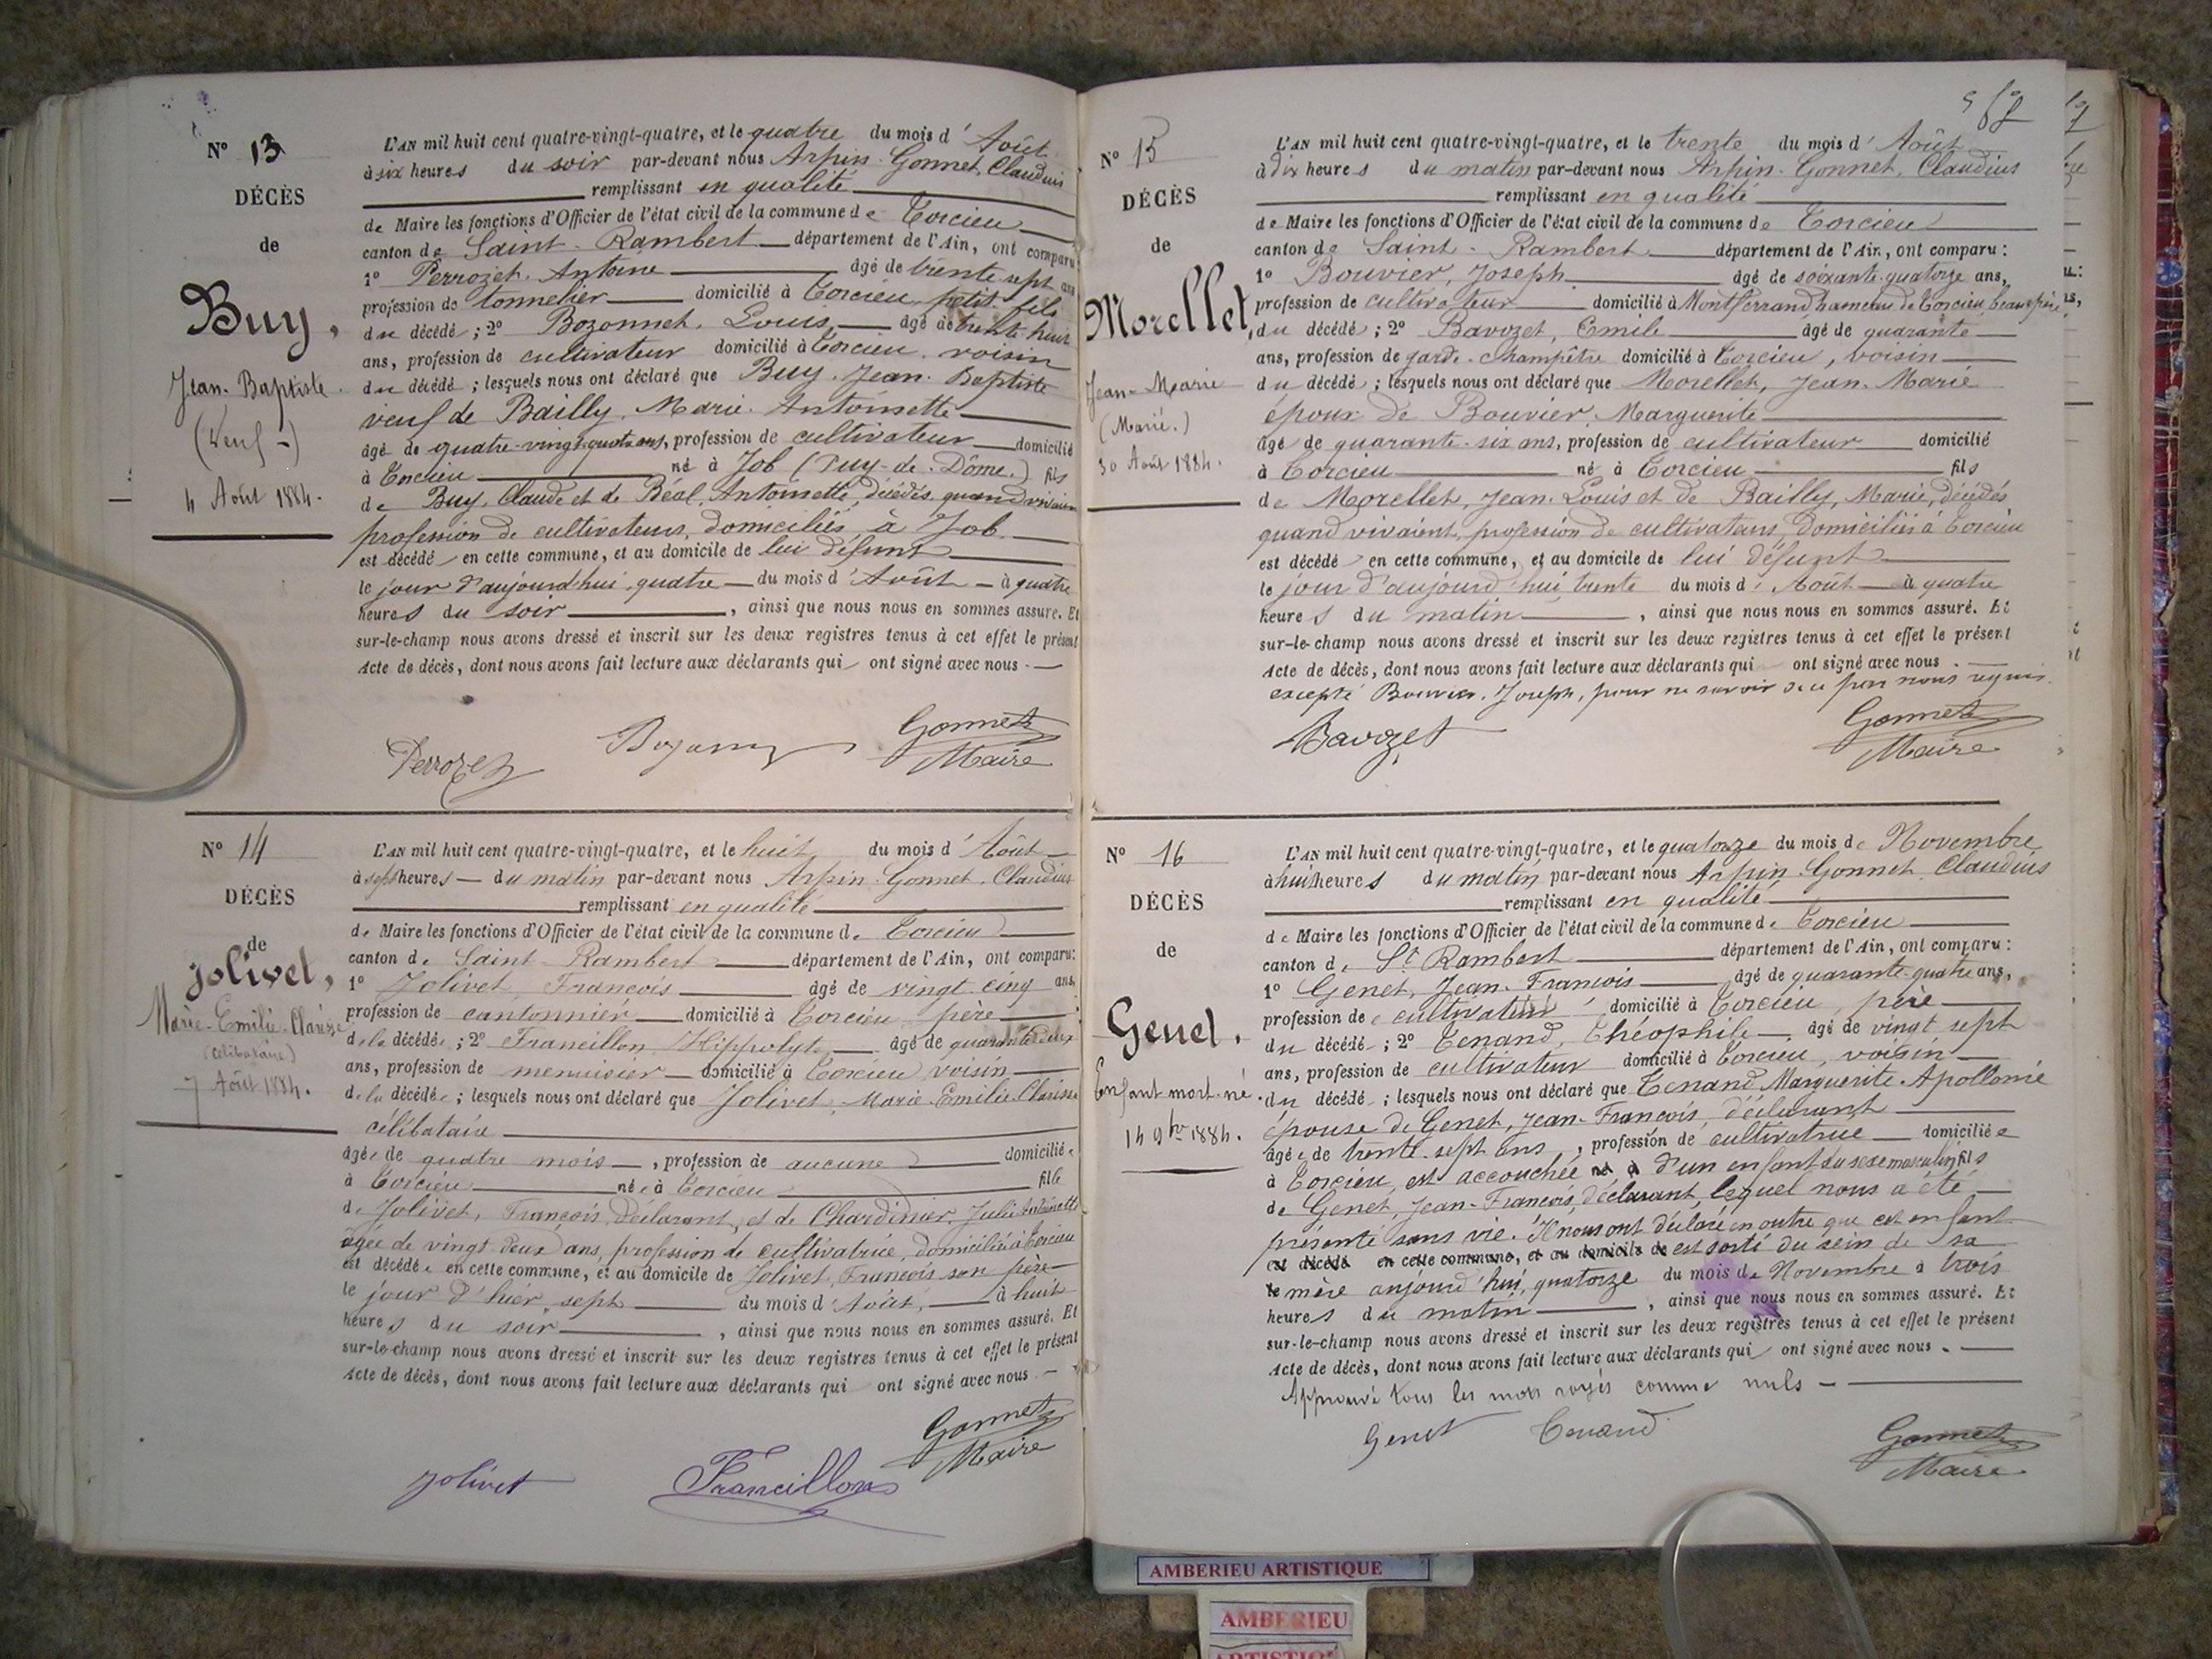 N° 13
DÉCÈS
de
Buy,
Jean-Baptiste
(Veuf-)
4 Août 1884.
L'AN mil huit cent quatre-vingt-quatre, et le quatre du mois d'Août
à six heures du soir par-devant nous Arpin-Gonnet, Claudius
remplissant en qualité
de Maire les fonctions d'Officier de l'état civil de la commune de Torcieu
canton de Saint-Rambert département de l'Ain, ont comparu
1° Perrozet, Antoine âgé de trente sept ans
profession de tonnelier domicilié à Torcieu, petit-fils
du décédé ; 2° Bozonnet, Louis, âgé de trente huit
ans, profession de cultivateur domicilié à Torcieu, voisin
du décédé ; lesquels nous ont déclaré que Buy, Jean-Baptiste
veuf de Bailly, Marie-Antoinette
âgé de quatre-vingt-quatre ans, profession de cultivateur domicilié
à Torcieu né à Job (Puy-de-Dôme) fils
de Buy, Claude et de Béal, Antoinette, décédés, quand vivaient
profession de cultivateurs, domiciliés à Job
est décédé en cette commune, et au domicile de lui défunt
le jour d'aujourd'hui quatre du mois d'Août à quatre
heures du soir, ainsi que nous nous en sommes assuré. Et
sur-le-champ nous avons dressé et inscrit sur les deux registres tenus à cet effet le présent
Acte de décès, dont nous avons fait lecture aux déclarants qui ont signé avec nous.
Perrozet Gonnet
Maire
N° 14
DÉCÈS
de
Jolivet,
Marie-Emilie-Clarisse
(Célibataire)
7 Août 1884.
L'AN mil huit cent quatre-vingt-quatre, et le huit du mois d'Août
à sept heures du matin par-devant nous Arpin-Gonnet, Claudius
remplissant en qualité
de Maire les fonctions d'Officier de l'état civil de la commune de Torcieu
canton de Saint-Rambert département de l'Ain, ont comparu:
1° Jolivet, François âgé de vingt-cinq ans,
profession de cantonnier domicilié à Torcieu, père
de la décédée ; 2° Francillon, Hippolyte, âgé de quarante deux
ans, profession de menuisier domicilié à Torcieu, voisin
de la décédée ; lesquels nous ont déclaré que Jolivet, Marie-Emilie-Clarisse
célibataire
âgée de quatre mois, profession de aucune domiciliée
à Torcieu née à Torcieu fille
de Jolivet, François, déclarant, et de Chardinier, Julie Antoinette
âgée de vingt deux ans, profession de cultivatrice, domiciliée à Torcieu
est décédée en cette commune, et au domicile de Jolivet, François son père
le jour d'hier, sept du mois d'Août, à huit
heures du soir, ainsi que nous nous en sommes assuré. Et
sur-le-champ nous avons dressé et inscrit sur les deux registres tenus à cet effet le présent
Acte de décès, dont nous avons fait lecture aux déclarants qui ont signé avec nous
Jolivet Francillon Gonnet
Maire
N° 15
DÉCÈS
de
Morellet,
Jean-Marie
(Marié.)
30 Août 1884.
L'AN mil huit cent quatre-vingt-quatre, et le trente du mois d'Août
à dix heures du matin par-devant nous Arpin-Gonnet, Claudius
remplissant en qualité
de Maire les fonctions d'Officier de l'état civil de la commune de Torcieu
canton de Saint-Rambert département de l'Ain, ont comparu:
1° Bouvier, Joseph âgé de soixante-quatorze ans,
profession de cultivateur domicilié à Montferrand, hameau de Torcieu, beau-père,
du décédé ; 2° Bavozet, Emile âgé de quarante
ans, profession de garde-champêtre domicilié à Torcieu, voisin
du décédé ; lesquels nous ont déclaré que Morellet, Jean-Marie
époux de Bouvier, Marguerite
âgé de quarante-six ans, profession de cultivateur domicilié
à Torcieu né à Torcieu fils
de Morellet, Jean-Louis et de Bailly, Marie, décédés
quand vivaient, profession de cultivateurs, domiciliés à Torcieu
est décédé en cette commune, et au domicile de lui défunt
le jour d'aujourd'hui trente du mois d'Août à quatre
heures du matin, ainsi que nous nous en sommes assuré. Et
sur-le-champ nous avons dressé et inscrit sur les deux registres tenus à cet effet le présent
Acte de décès, dont nous avons fait lecture aux déclarants qui ont signé avec nous.
excepté Bouvier, Joseph, pour ne savoir de ce par nous requis.
Bavozet Gonnet
Maire
N° 16
DÉCÈS
de
Genet.
Enfant mort-né.
14 9bre 1884.
L'AN mil huit cent quatre-vingt-quatre, et le quatorze du mois de Novembre
à huit heures du matin par-devant nous Arpin-Gonnet, Claudius
remplissant en qualité
de Maire les fonctions d'Officier de l'état civil de la commune de Torcieu
canton de St Rambert département de l'Ain, ont comparu:
1° Genet, Jean-François âgé de quarante-quatre ans,
profession de cultivateur domicilié à Torcieu, père
du décédé ; 2° Tenand, Théophile, âgé de vingt sept
ans, profession de cultivateur domicilié à Torcieu, voisin
du décédé ; lesquels nous ont déclaré que Tenand Marguerite-Apollonie
épouse de Genet, Jean-François, déclarant
âgée de trente-sept ans, profession de cultivatrice domiciliée
à Torcieu, est accouchée né à d'un enfant du sexe masculin fils
de Genet, Jean-François, déclarant, lequel nous a été
présenté sans vie. Il nous ont déclaré en outre que cet enfant
est décédé en cette commune, et au domicile de est sorti du sein de sa
le mère aujourd'hui, quatorze du mois de Novembre à trois
heures du matin, ainsi que nous nous en sommes assuré. Et
sur-le-champ nous avons dressé et inscrit sur les deux registres tenus à cet effet le présent
Acte de décès, dont nous avons fait lecture aux déclarants qui ont signé avec nous.
Approuvé tous les mots rayés comme nuls
Genet Tenand Gonnet
Maire
AMBERIEU ARTISTIQUE
AMBERIEU
ARTISTIQUE